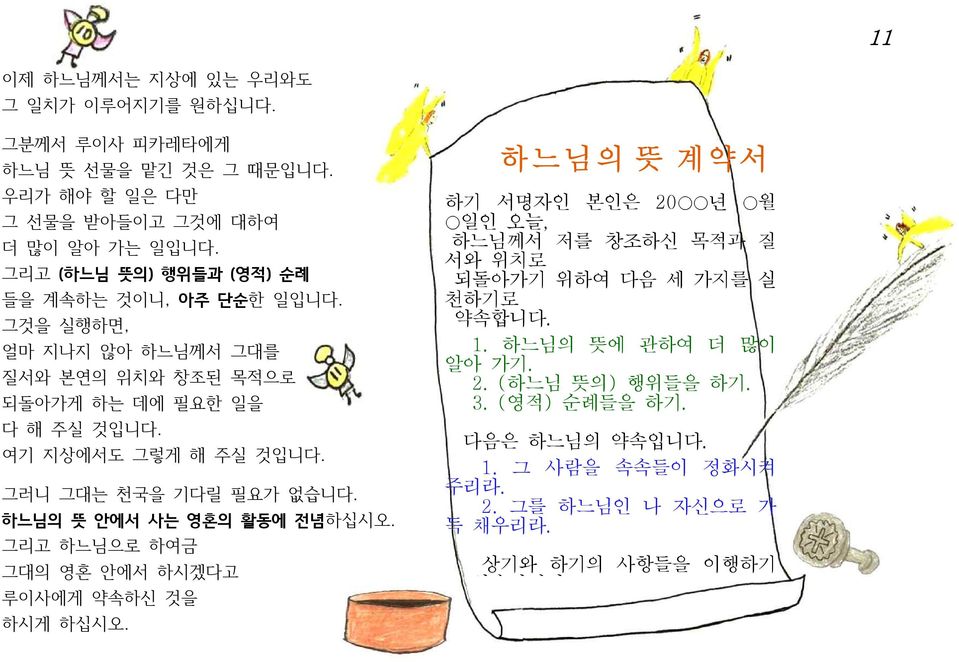 11
이제 하느님께서는 지상에 있는 우리와도
그 일치가 이루어지기를 원하십니다.
그분께서 루이사 피카레타에게
하느님 뜻 선물을 맡긴 것은 그 때문입니다.
우리가 해야 할 일은 다만
그 선물을 받아들이고 그것에 대하여
더 많이 알아 가는 일입니다.
그리고 (하느님 뜻의) 행위들과 (영적) 순례
들을 계속하는 것이니, 아주 단순한 일입니다.
그것을 실행하면,
얼마 지나지 않아 하느님께서 그대를
질서와 본연의 위치와 창조된 목적으로
되돌아가게 하는 데에 필요한 일을
다 해 주실 것입니다.
여기 지상에서도 그렇게 해 주실 것입니다.
그러니 그대는 천국을 기다릴 필요가 없습니다.
하느님의 뜻 안에서 사는 영혼의 활동에 전념하십시오.
그리고 하느님으로 하여금
그대의 영혼 안에서 하시겠다고
루이사에게 약속하신 것을
하시게 하십시오.
하느님의 뜻 계약서
하기 서명자인 본인은 20○○년 ○월
○일인 오늘,
하느님께서 저를 창조하신 목적과 질
서와 위치로
되돌아가기 위하여 다음 세 가지를 실
천하기로
약속합니다.
1. 하느님의 뜻에 관하여 더 많이
알아 가기.
2. (하느님 뜻의) 행위들을 하기.
3. (영적) 순례들을 하기.
다음은 하느님의 약속입니다.
1. 그 사람을 속속들이 정화시켜
주리라.
2. 그를 하느님인 나 자신으로 가
득 채우리라.
상기와 하기의 사항들을 이행하기